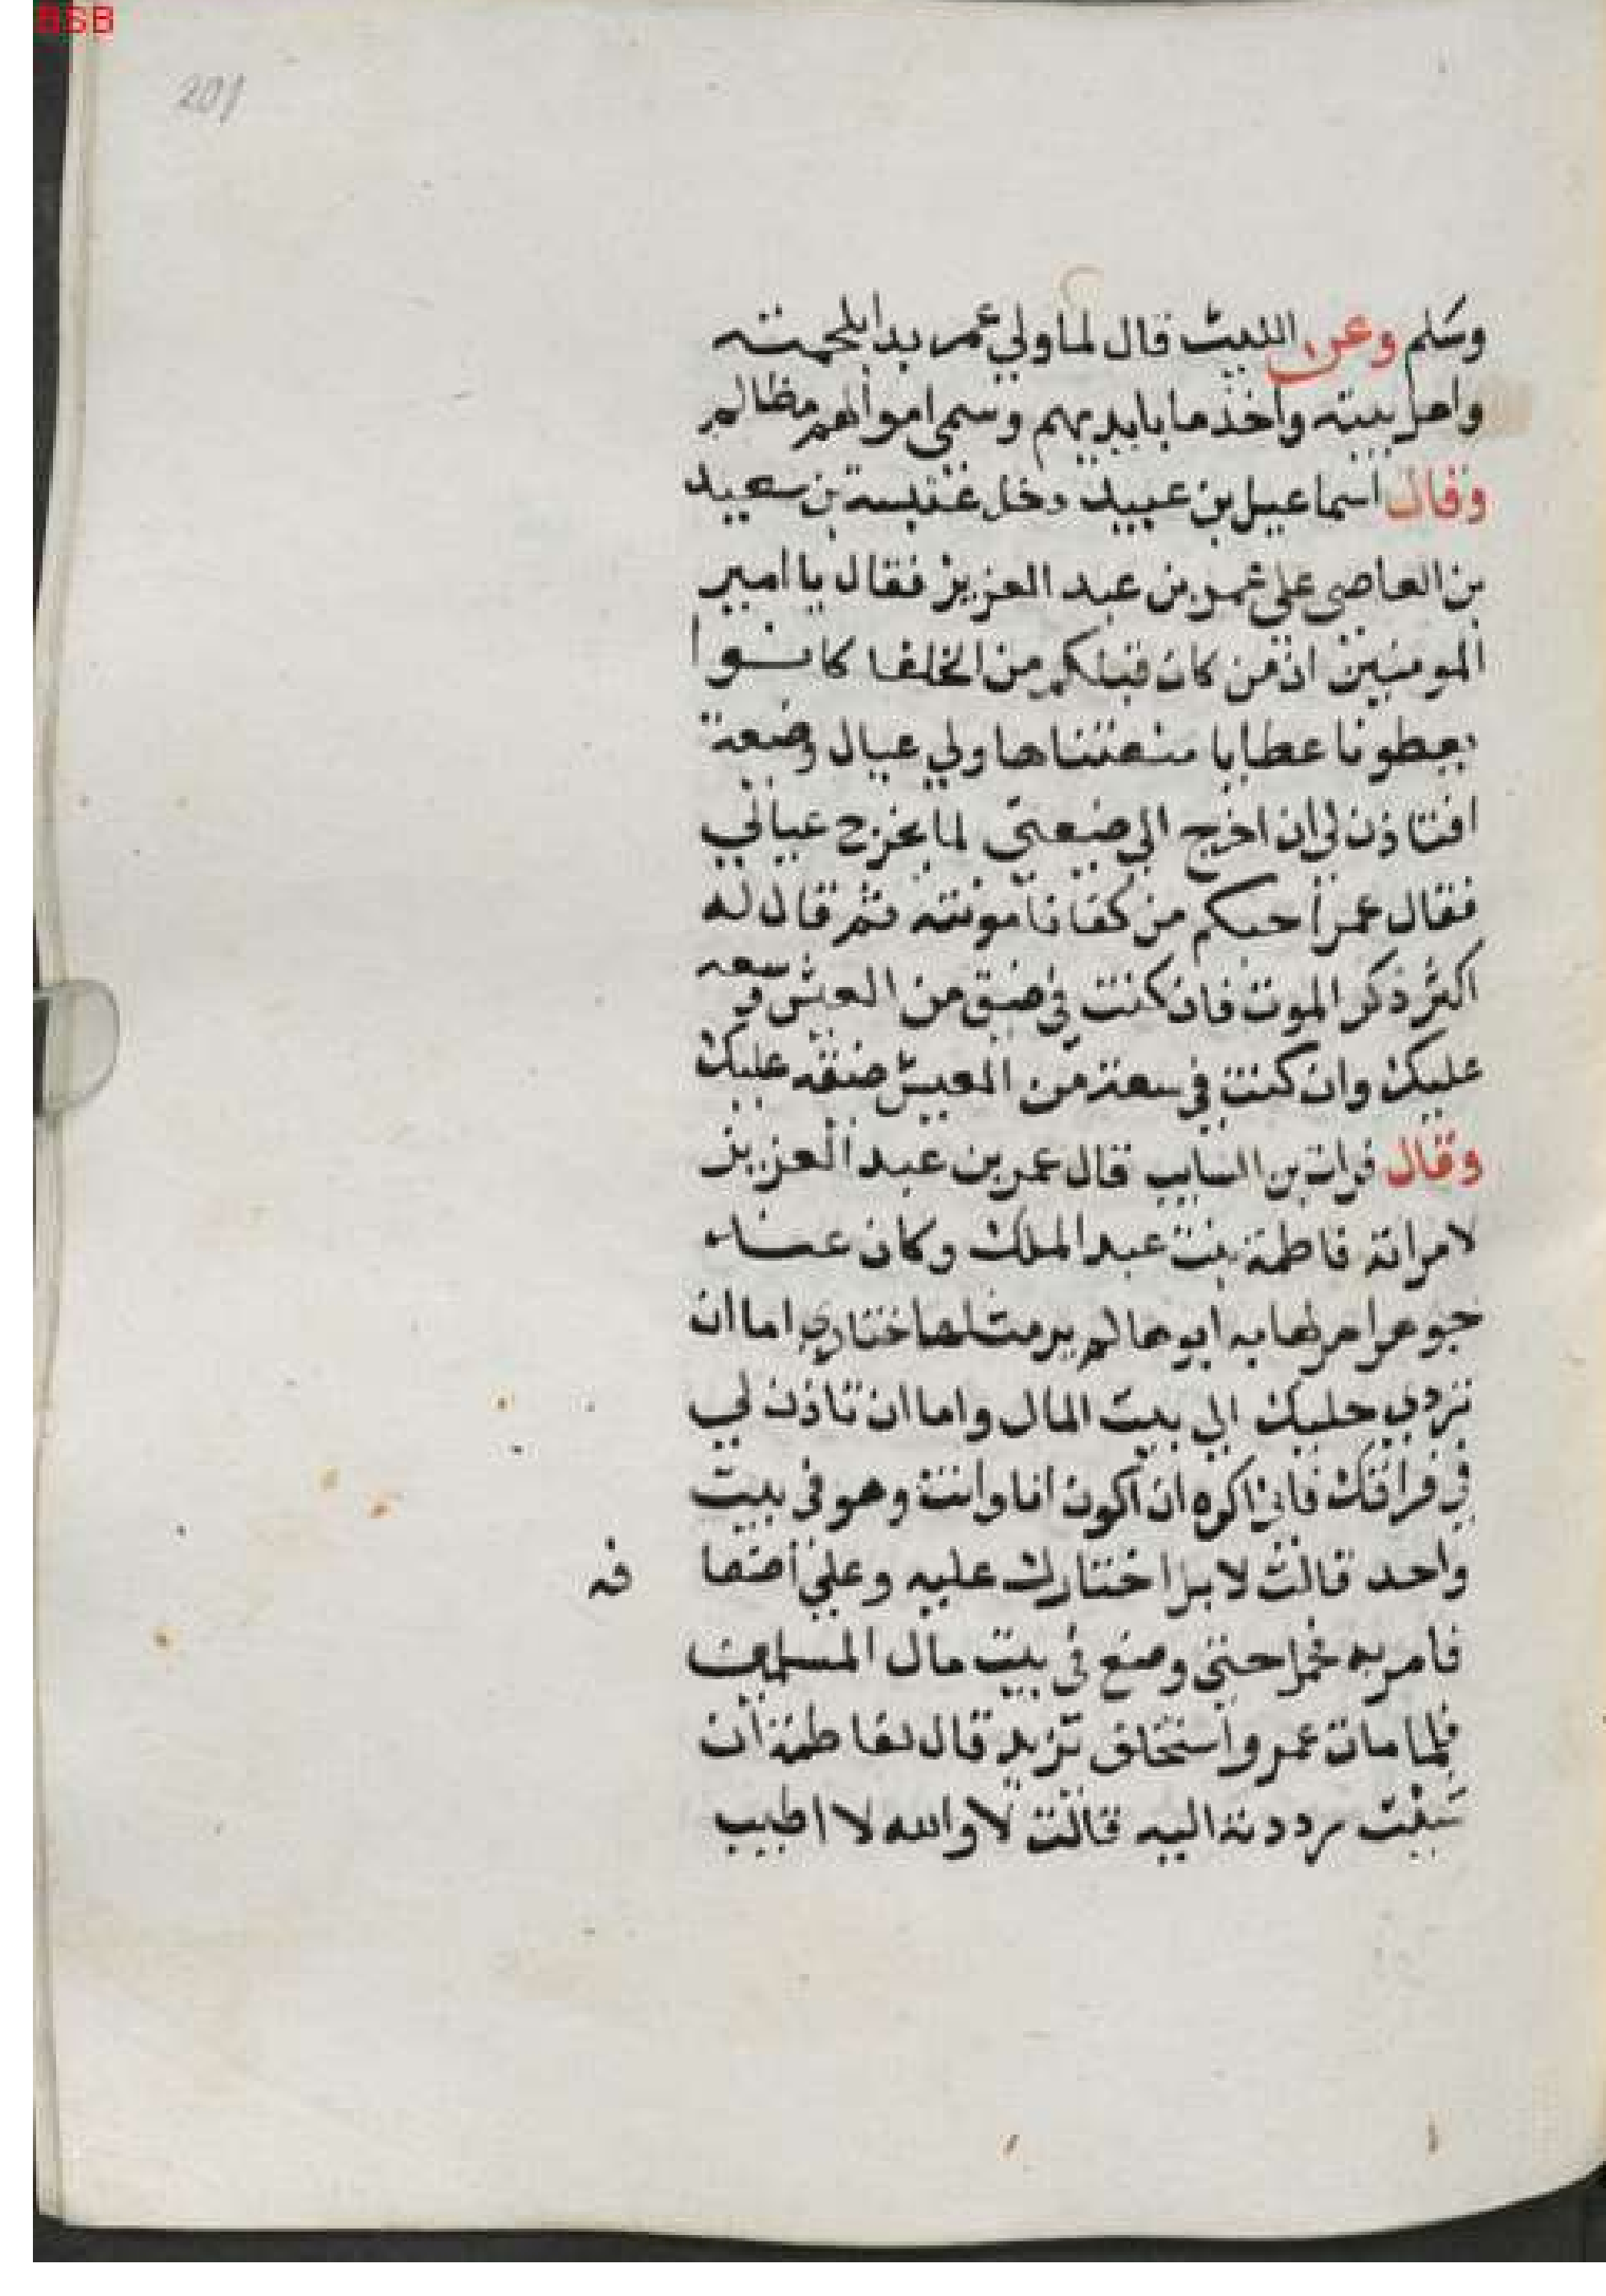 BSB
201
وسلم وعن الليث قال لما ولي عمر بدا بلحمته
واهل بيته واخذ ما بايديهم وسمي اموالهم مظالم
وقال اسماعيل بن عبيد دخل عنبسة بن سعيد
بن العاصي علي عمر بن عبد العزيز فقال يا امير
المومنين ان من كان قبلكم من الخلفا كانوا
يعطونا عطايا منعتناها ولي عيال وضيعة
افتاذن لي ان اخرج الي ضيعتي لما يخرج عيالي
فقال عمر احبكم من كفانا مونته ثم قال له
اكثر ذكر الموت فان كنت في ضيق من العيش وسعه
عليك وان كنت في سعة من العيش ضيقه عليك
وقال فرات بن السايب قال عمر بن عبد العزيز
لامراته فاطمة بنت عبد الملك وكان عندها
جوهر امر لها به ابوها لم ير مثلها اختاري اما ان
تردي حليك الي بيت المال واما ان تاذن لي
في فراقك فاني اكره ان اكون انا وانت وهو في بيت
واحد قالت لا بل اختارك عليه وعلي اضعا فه
فامر به فحمل حتي وضع في بيت مال المسلمين
فلما مات عمر واستخلف يزيد قال لفاطمة ان
شيت رددته اليه قالت لا والله لا اطيب